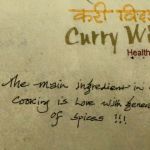 करी
Curry
Health
The main ingredient in
Cooking is Love with
of Spices !!!